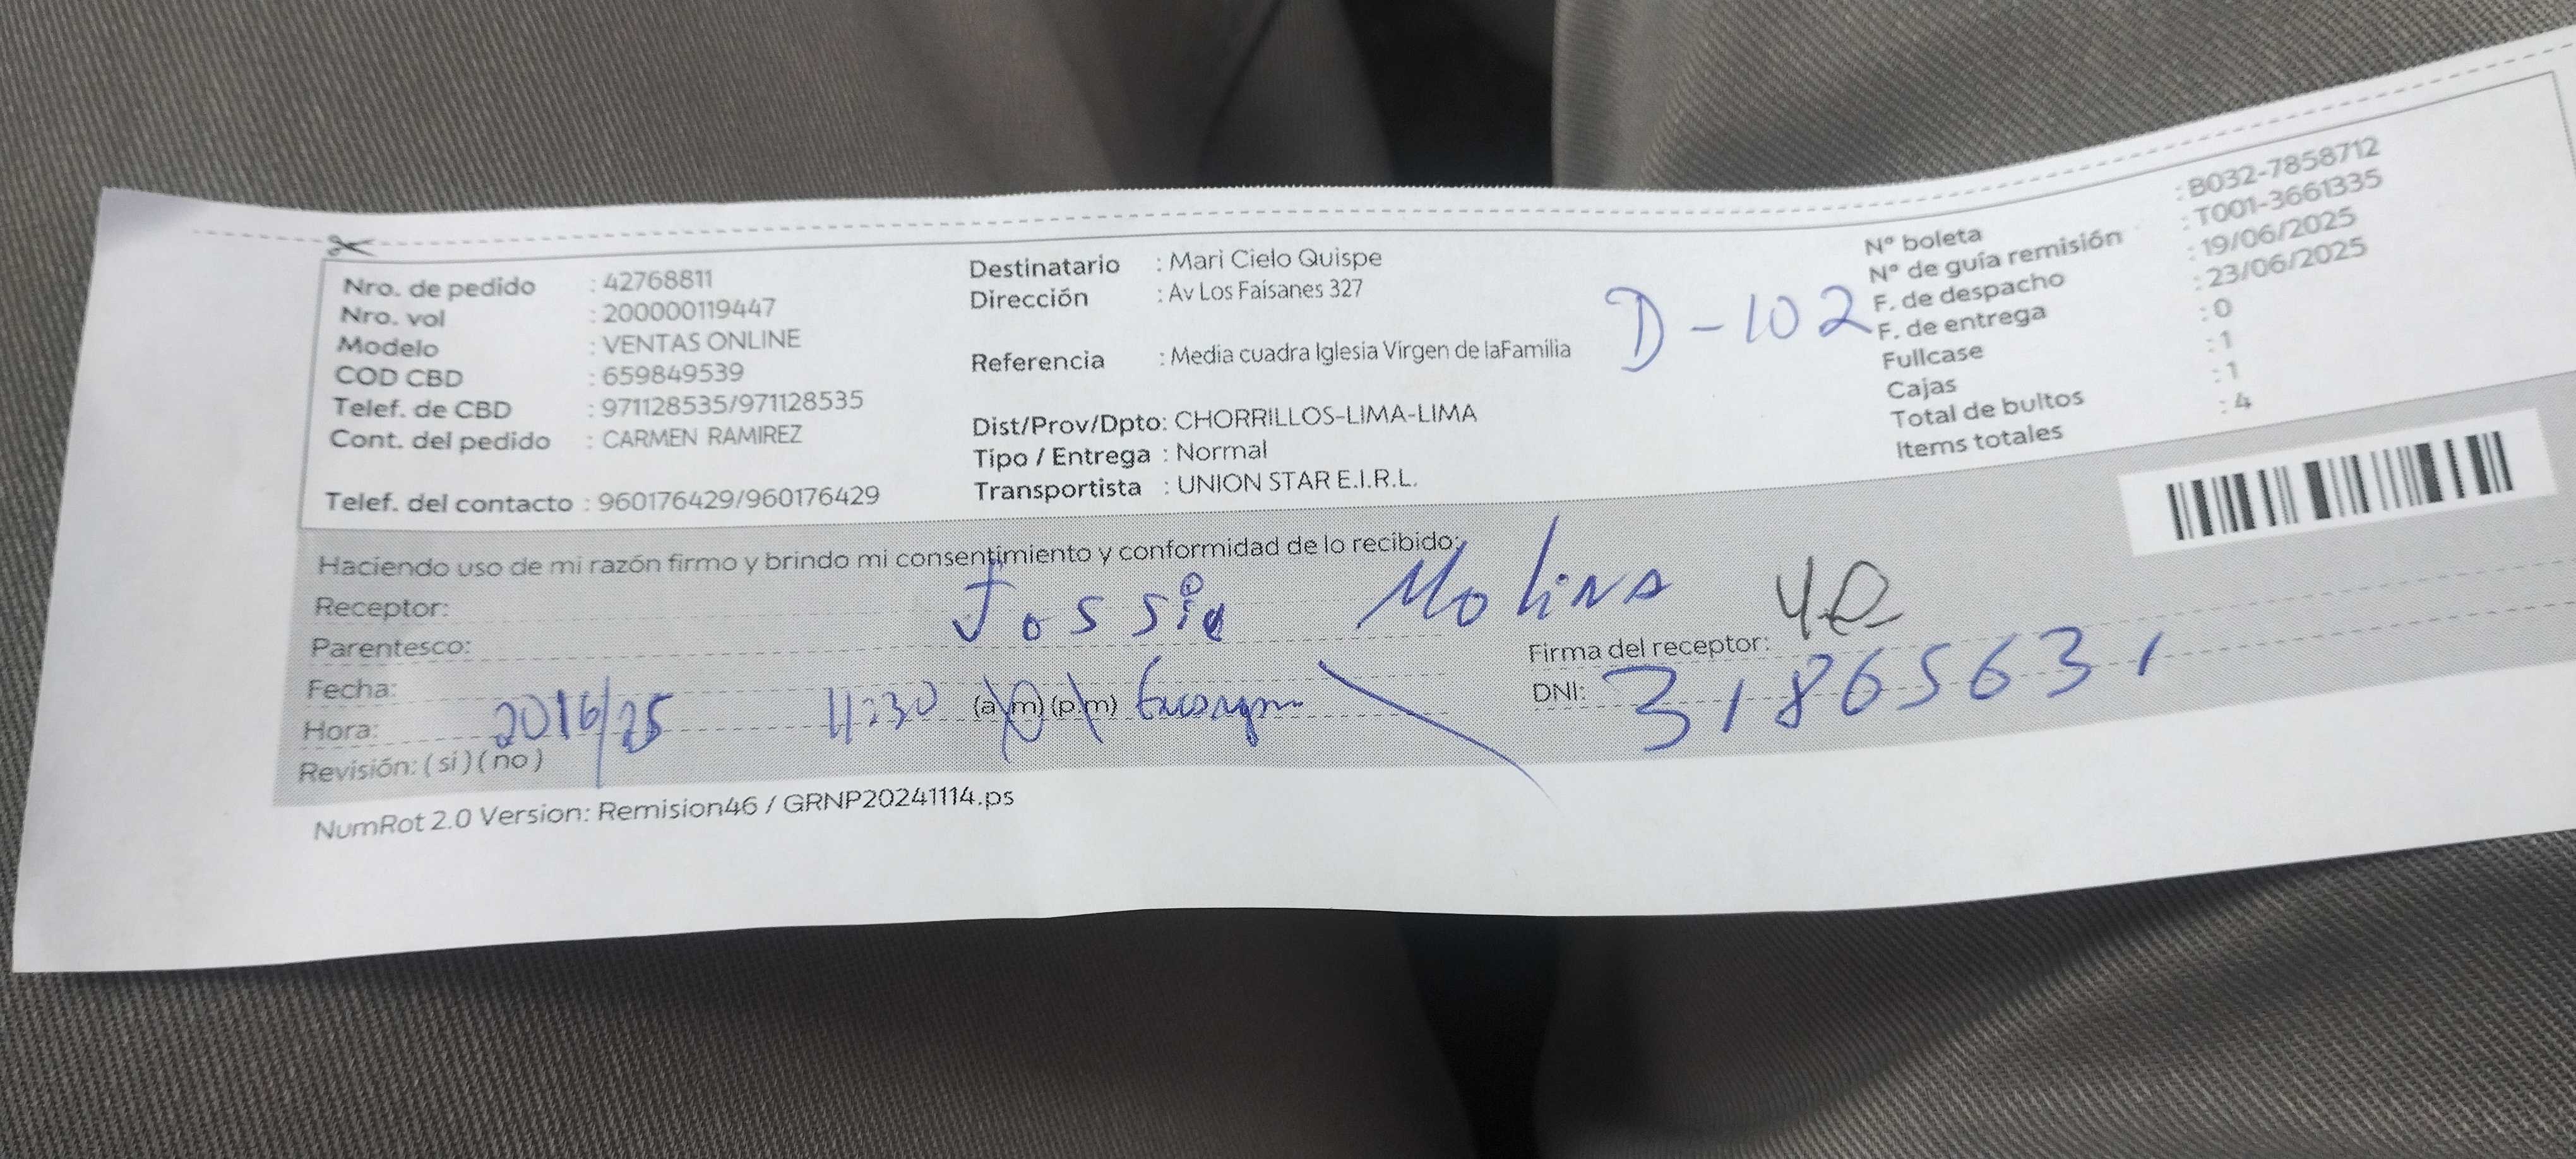 Nro. de pedido : 42768811
Nro. vol : 200000119447
Modelo : VENTAS ONLINE
COD CBD : 659849539
Telef. de CBD : 971128535/971128535
Cont. del pedido : CARMEN RAMIREZ
Telef. del contacto : 960176429/960176429
Destinatario : Mari Cielo Quispe
Dirección : Av Los Faisanes 327
D-102
Referencia : Media cuadra Iglesia Virgen de laFamilia
Dist/Prov/Dpto: CHORRILLOS-LIMA-LIMA
Tipo / Entrega : Normal
Transportista : UNION STAR E.I.R.L.
N° boleta : B032-7858712
N° de guía remisión : T001-3661335
F. de despacho : 19/06/2025
F. de entrega : 23/06/2025
Fullcase : 0
Cajas : 1
Total de bultos : 1
Items totales : 4
Haciendo uso de mi razón firmo y brindo mi consentimiento y conformidad de lo recibido:
Receptor: Jossie Molina
Parentesco:
Firma del receptor:
Fecha:
DNI: 31865631
Hora: 2016/25 11:30 (a m) (p m)
Revisión: ( si ) ( no )
NumRot 2.0 Version: Remision46 / GRNP20241114.ps